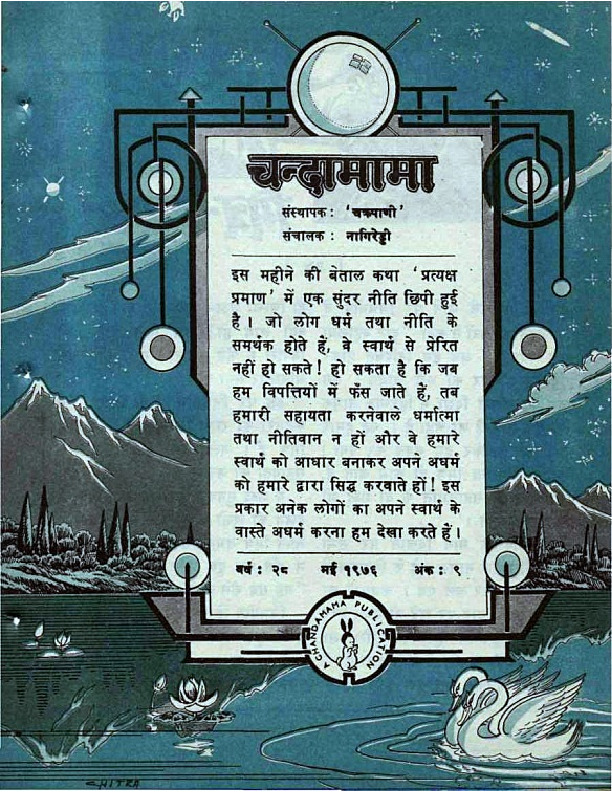 चन्दामामा
संस्थापक : 'चक्रपाणी'
संचालक : नागिरेड्डी
इस महीने की बेताल कथा 'प्रत्यक्ष
प्रमाण' में एक सुंदर नीति छिपी हुई
है । जो लोग धर्म तथा नीति के
समर्थक होते हैं, वे स्वार्थ से प्रेरित
नहीं हो सकते ! हो सकता है कि जब
हम विपत्तियों में फँस जाते हैं, तब
हमारी सहायता करनेवाले धर्मात्मा
तथा नीतिवान न हों और वे हमारे
स्वार्थ को आधार बनाकर अपने अधर्म
को हमारे द्वारा सिद्ध करवाते हों ! इस
प्रकार अनेक लोगों का अपने स्वार्थ के
वास्ते अधर्म करना हम देखा करते हैं ।
वर्ष : २८ मई १९७६ अंक : ९
A CHANDAMAMA PUBLICATION
CHITRA